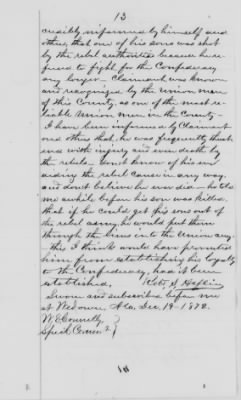 13
credibly informed by himself and
others, that one of his sons was shot
by the rebel authorities because he re-
fused to fight for the Confederacy
any longer - Claimant was known
and recognized by the Union men
of this County, as one of the most re-
liable Union men in the County -
I have been informed by Claimant
and others that he was frequently threat-
ened with injury and even death by
the rebels - don't know of his ever
aiding the rebel cause in any way,
and don't believe he ever did - he told
me awhile before his son was killed,
that if he could get his sons out of
the rebel army, he would put them
through the lines into the Union army.
- this I think would have prevented
him from establishing his loyalty
to the Confederacy, had it been
established,
Robt S Heflin
Sworn and subscribed before me
at Wedowee, Ala. Dec. 19 - 1872.
W. E. Connelly
Special Comr